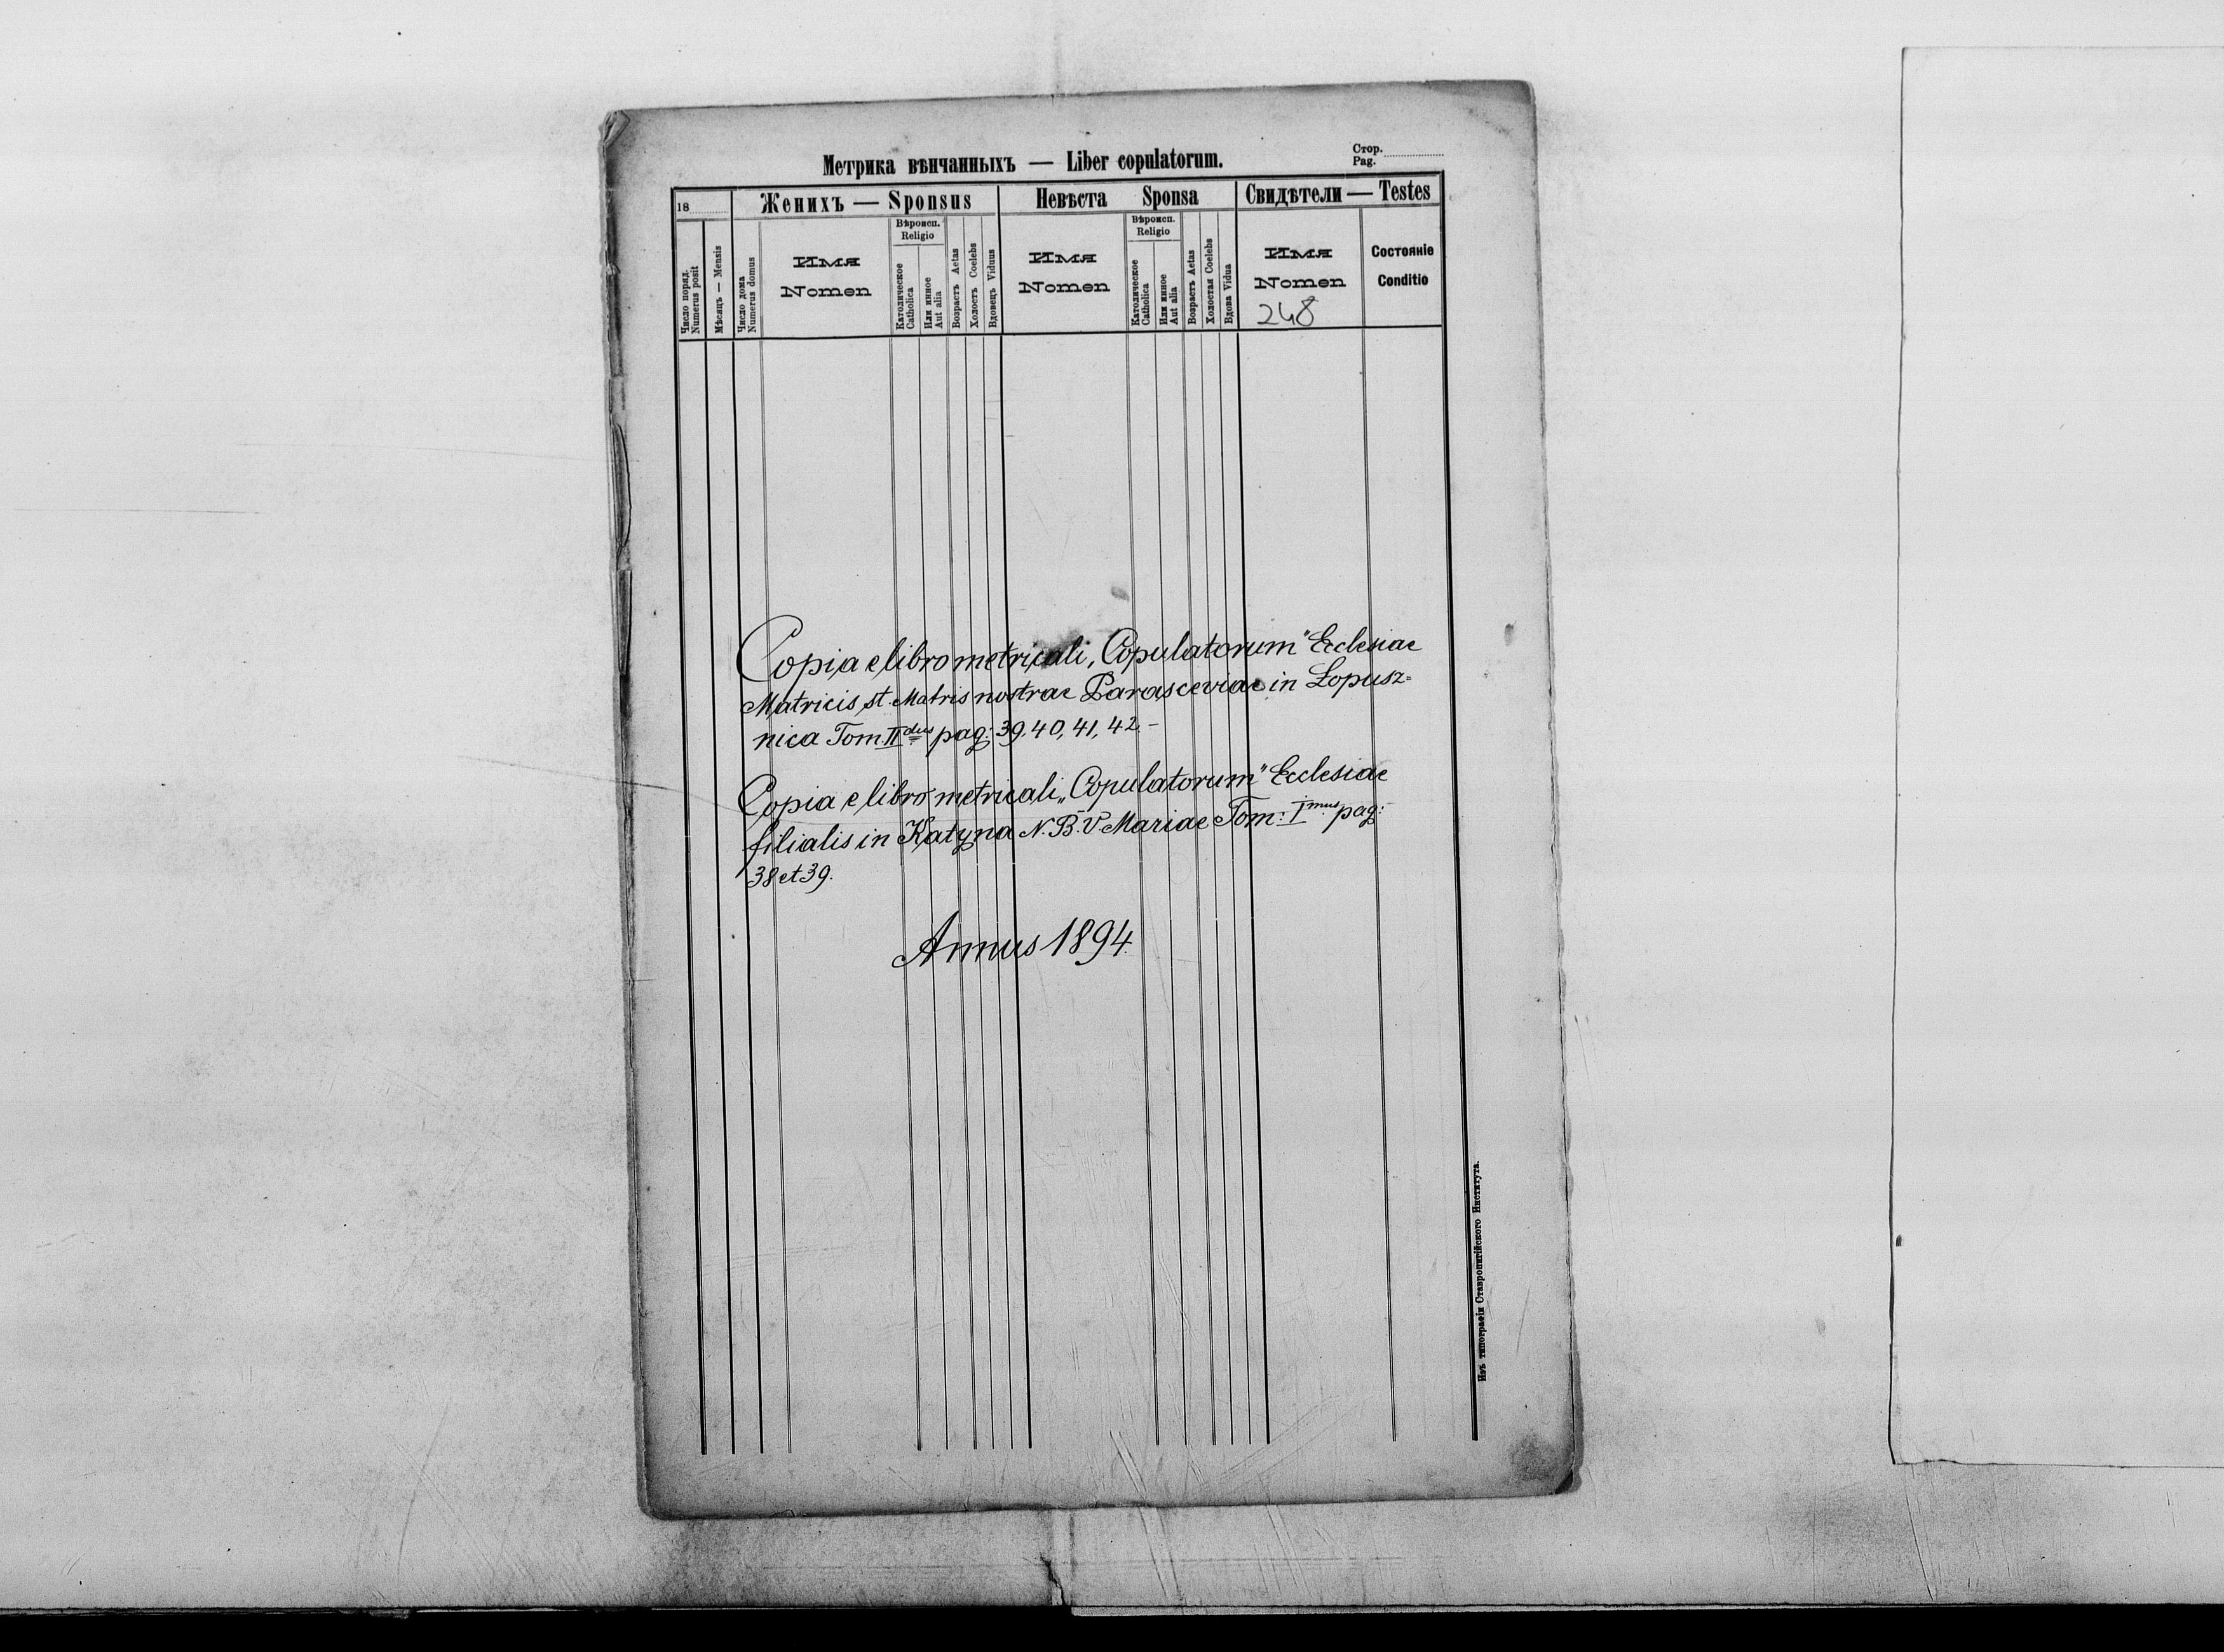 Метрика вѣнчанныхъ — Liber copulatorum.
Стор.
Pag.
18
Женихъ — Sponsus
Невѣста Sponsa
Свидѣтели — Testes
Число поряд.
Numerus posit
Мѣсяцъ — Mensis
Число дома
Numerus domus
Имя
Nomen
Вѣроисп.
Religio
Католическое
Catholica
Или инное
Aut alia
Возрастъ Aetas
Холостъ Coelebs
Вдовецъ Viduus
Имя
Nomen
Вѣроисп.
Religio
Католическое
Catholica
Или инное
Aut alia
Возрастъ Aetas
Холостая Coelebs
Вдова Vidua
Имя
Nomen
248
Состояніе
Conditio
Copia e libro metricali „Copulatorum" Ecclesiae
Matricis st. Matris nostrae Parasceviae in Lopusz=
nica Tom. II dus pag: 39, 40, 41, 42.–
Copia e libro metricali „Copulatorum" Ecclesiae
filialis in Katyna N. B. V. Mariae Tom: I mus pag:
38 et 39.
Annus 1894.
Изъ типографіи Ставропигійского Института.